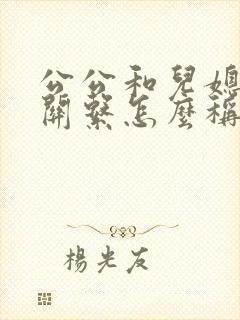 公公和兒媳
關繫怎麼稱
楊光友